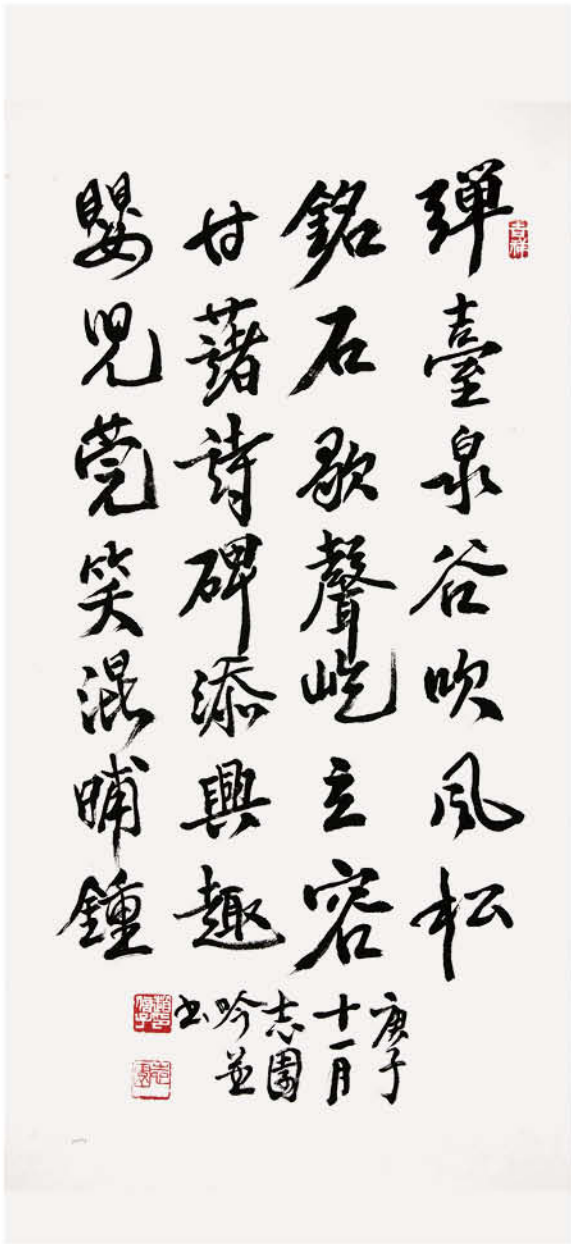 彈臺泉谷吹風松
銘石歌聲屹立容
甘藷詩碑添興趣
嬰兒莞笑混晡鍾
庚子
十一月
志園
吟並
书
吉祥